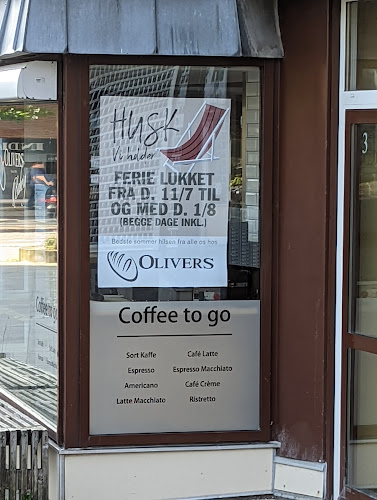 HUSK
Vi holder
FERIE LUKKET
FRA D. 11/7 TIL
OG MED D. 1/8
(BEGGE DAGE INKL.)
Bedste sommer hilsen fra alle os hos
OLIVERS
Coffee to go
Sort Kaffe
Café Latte
Espresso
Espresso Macchiato
Americano
Café Crème
Latte Macchiato
Ristretto
3